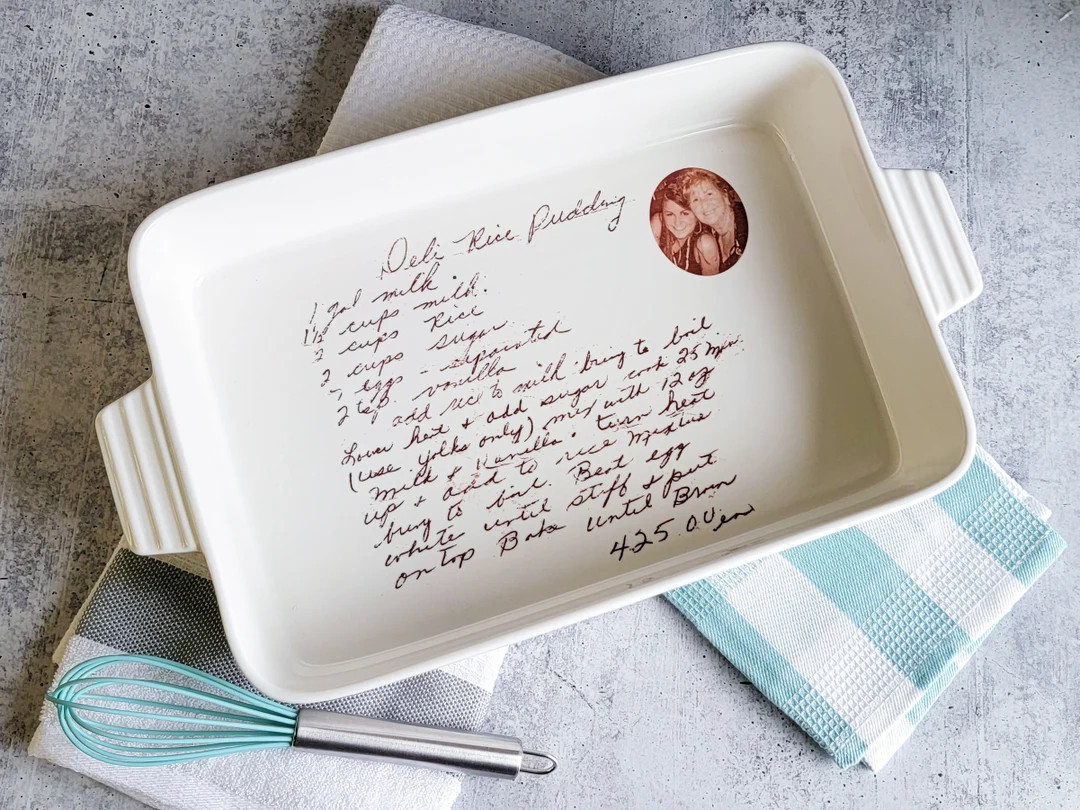 Deli Rice Pudding
1 gal milk
1½ cups milk.
2 cups Rice
2 cups sugar
eggs - separated
2 tsp. vanilla
add rice to milk bring to boil
Lower heat + add sugar cook 25 Min.
(use yolks only) mix with 12 oz
milk + Vanilla. turn heat
up + add to rice mixture
bring to boil. Beat egg
white until stiff + put
on top Bake until Brown
425 Oven